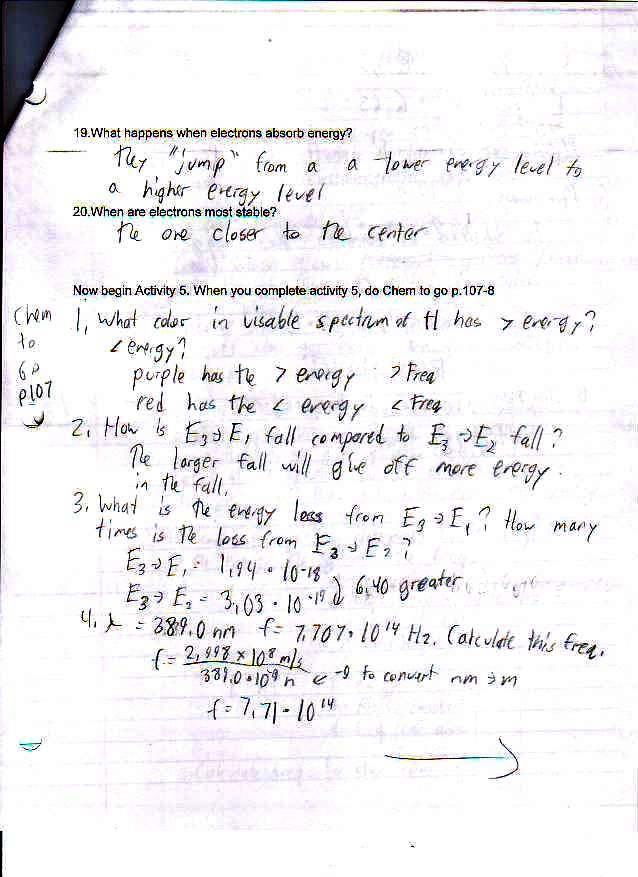 19.What happens when electrons absorb energy?
They "jump" from a a lower energy level to
a higher energy level
20.When are electrons most stable?
the one closer to the center
Now begin Activity 5. When you complete activity 5, do Chem to go p.107-8
Chem
to
go
p107
1. What color in visable spectrum of H has > energy?
< energy?
purple has the > energy > Freq
red has the < energy < Freq
2. How is E3→E1 fall compared to E3→E2 fall?
The larger fall will give off more energy.
in the fall.
3. What is the energy loss from E3→E1? How many
times is the loss from E3→E2?
E3→E1 = 1.94 • 10-18
E3→E2 = 3.03 • 10-19 6.40 greater
4. λ = 389.0 nm f= 7.707•10^14 Hz. Calculate this freq.
f= 2.998 x 10^8 m/s
389.0•10^-9 n ← -9 to convert nm → m
f= 7.71 • 10^14